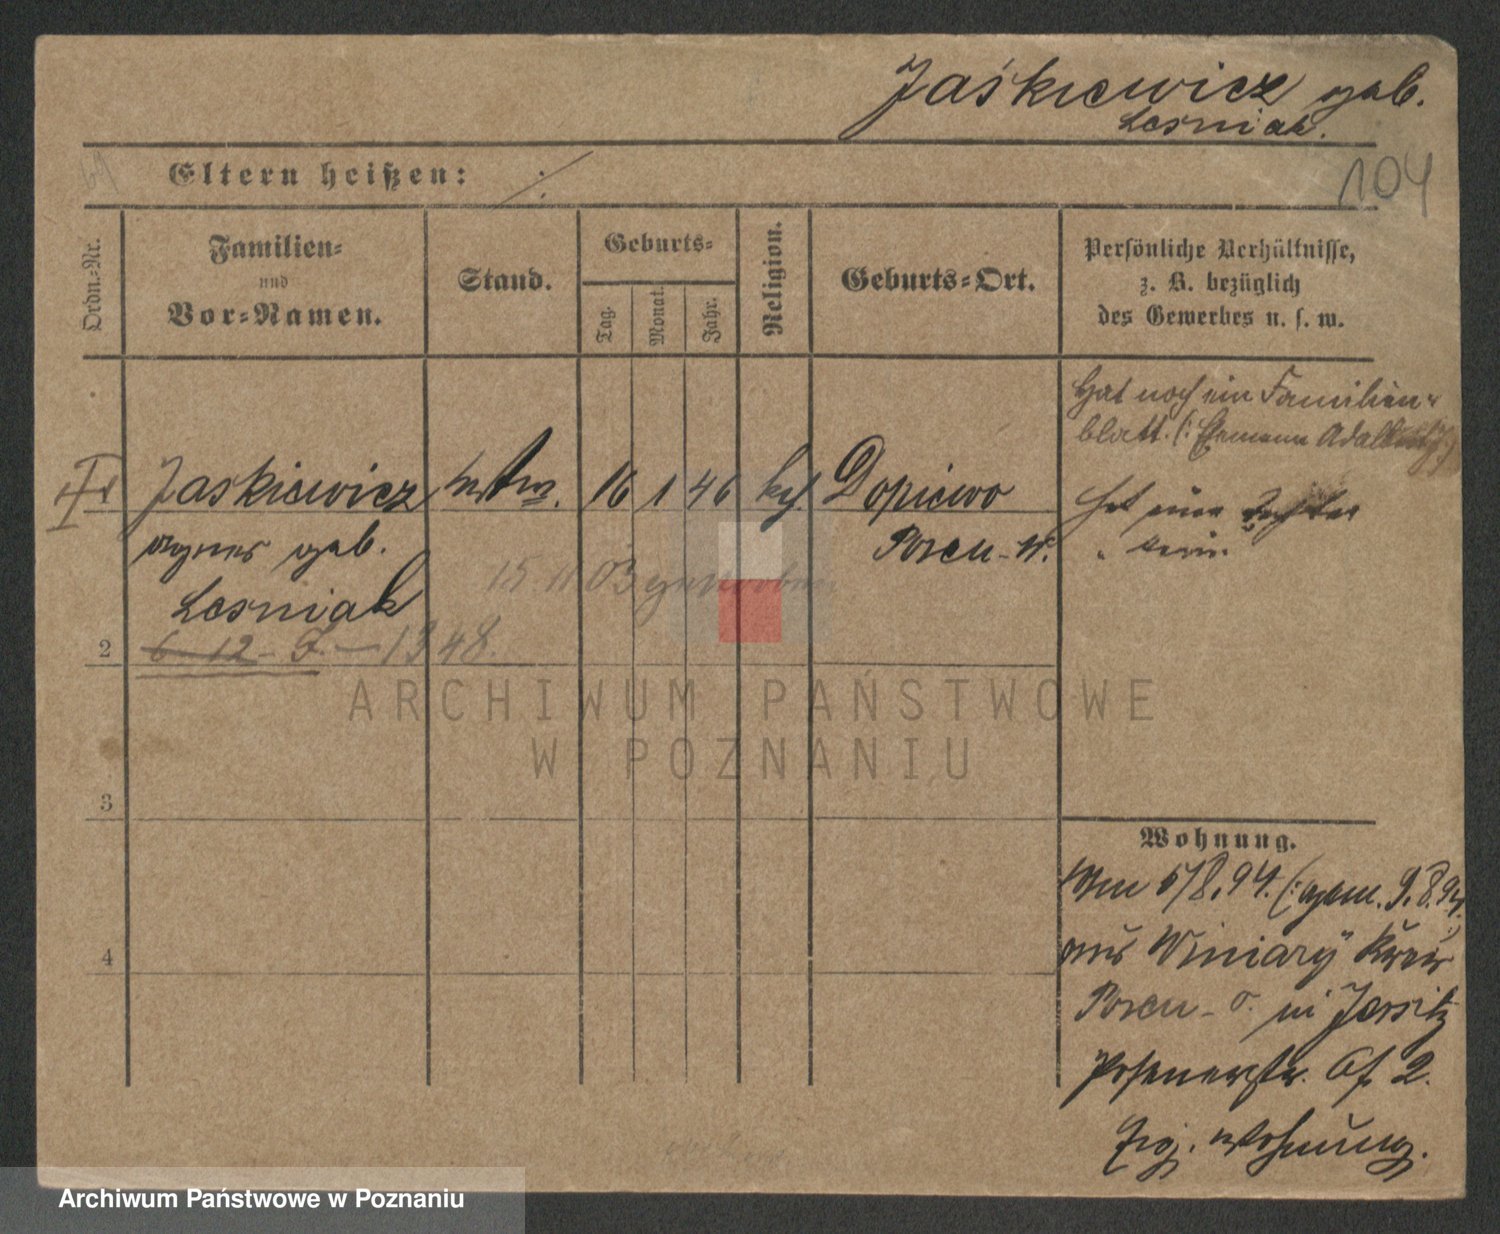 Jaśkiewicz geb.
Lesniak.
104
Eltern heißen: ./.
Ordn.-Nr.
Familien-
und
Vor-Namen.
Stand.
Geburts-
Tag.
Monat.
Jahr.
Religion.
Geburts-Ort.
Persönliche Verhältnisse,
z. B. bezüglich
des Gewerbes u. s. w.
Hat noch ein Familien-
blatt. (: Ehemann Adalbert :)
Jaskiewicz Wtw. 16 1 46 kth. Dopiewo
Agnes geb.
Posen-W.
Lesniak
Hat eine Tochter
15.11.03 gestorben
2
6-12- 1348.
3
4
Wohnung.
Am 5/8.94. (: agem. 9.8.94. :)
aus Winiary Kreis
Posen-O. in Jersitz
Posenerstr. No 2.
Eig. Wohnung.
ARCHIWUM PAŃSTWOWE
W POZNANIU
Archiwum Państwowe w Poznaniu